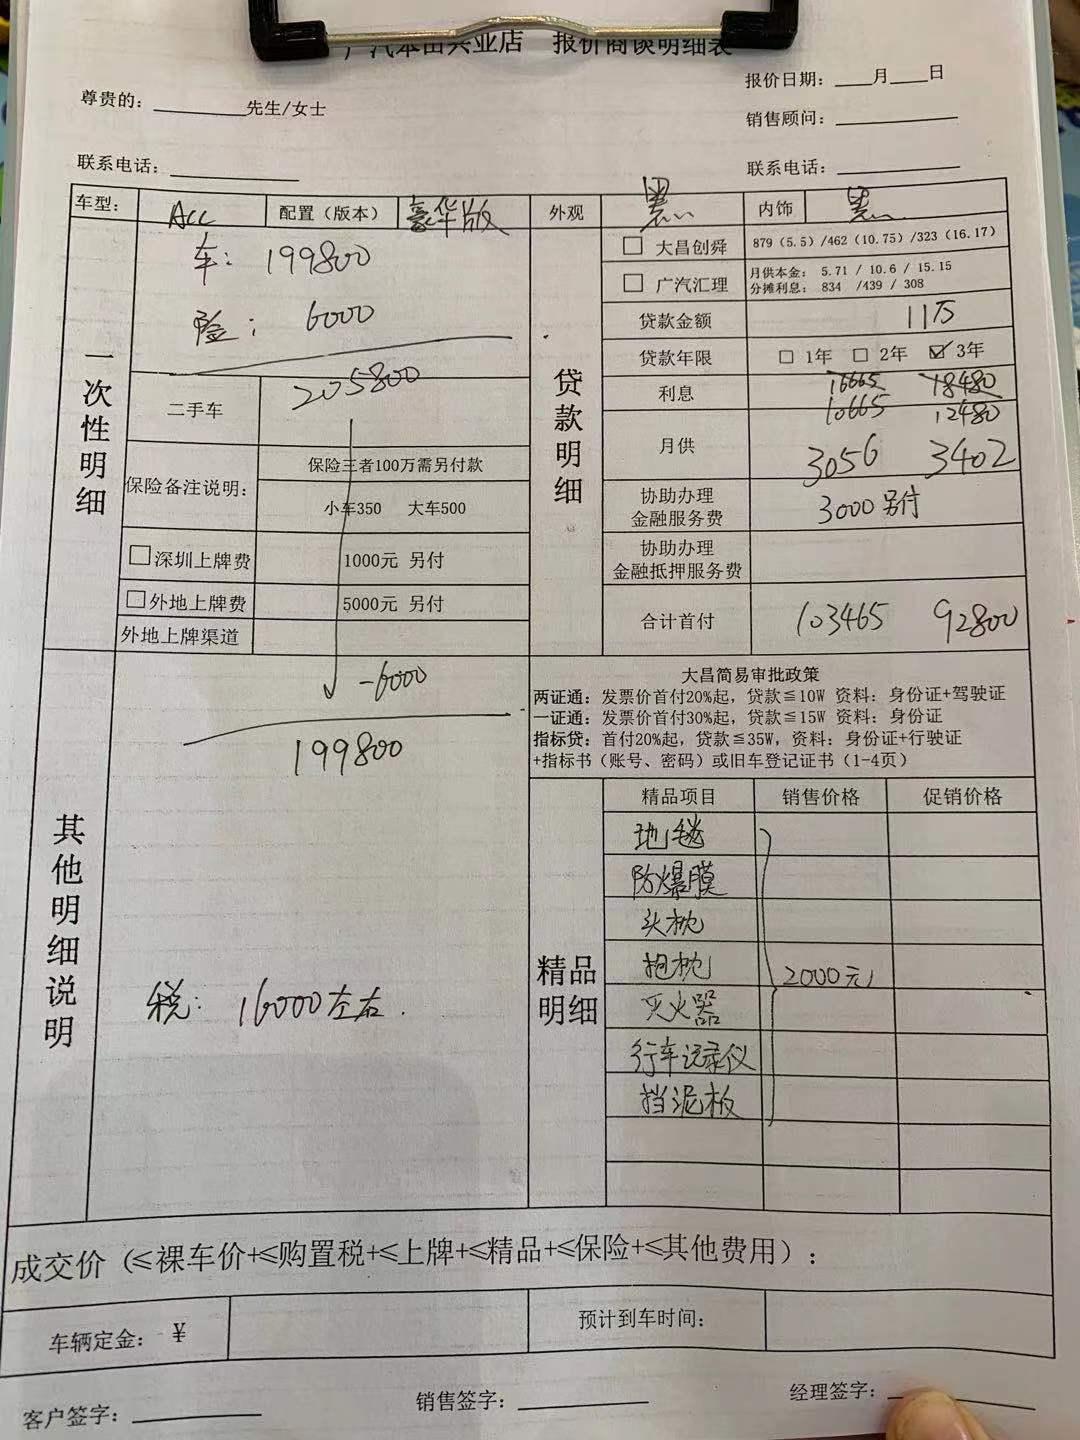 广汽本田兴业店 报价商谈明细表
报价日期：____月____日
尊贵的：________先生/女士
销售顾问：________
联系电话：________
联系电话：________
车型： Acc 配置（版本） 豪华版 外观 黑 内饰 黑
一次性明细
车： 199800
险： 6000
205800
二手车
保险备注说明：
保险三者100万需另付款
小车350 大车500
□深圳上牌费 1000元 另付
□外地上牌费 5000元 另付
外地上牌渠道
贷款明细
□ 大昌创舜 879（5.5）/462（10.75）/323（16.17）
□ 广汽汇理 月供本金： 5.71 / 10.6 / 15.15
分摊利息： 834 /439 / 308
贷款金额 11万
贷款年限 □ 1年 □ 2年 ☑ 3年
利息 16665 18480
10665 12480
月供 3056 3402
协助办理
金融服务费 3000另付
协助办理
金融抵押服务费
合计首付 103465 92800
其他明细说明
-6000
199800
税： 16000左右.
大昌简易审批政策
两证通：发票价首付20%起，贷款≦10W 资料：身份证+驾驶证
一证通：发票价首付30%起，贷款≦15W 资料：身份证
指标贷：首付20%起，贷款≦35W，资料：身份证+行驶证
+指标书（账号、密码）或旧车登记证书（1-4页）
精品明细
精品项目 销售价格 促销价格
地毯
防爆膜
头枕
抱枕 2000元
灭火器
行车记录仪
挡泥板
成交价（≤裸车价+≤购置税+≤上牌+≤精品+≤保险+≤其他费用）：
车辆定金： ¥ 预计到车时间：
客户签字：________ 销售签字：________ 经理签字：________